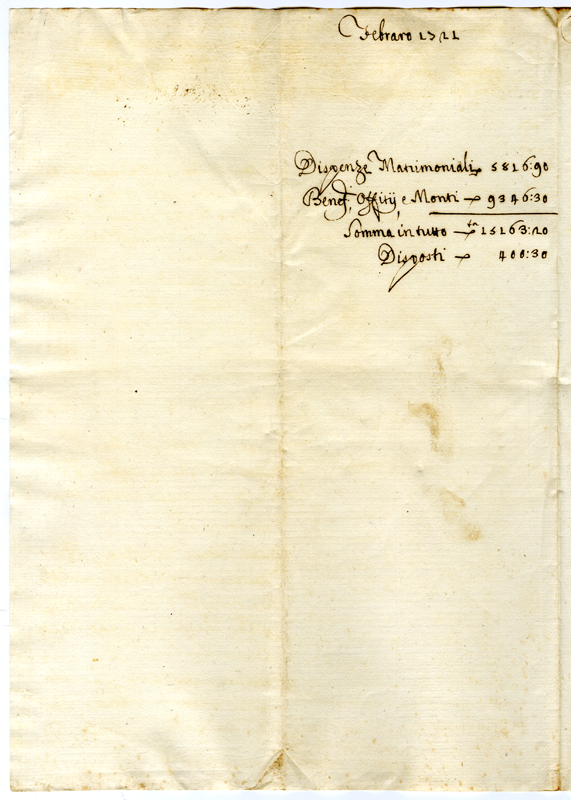 Febraro 1721
Dispenze Matrimoniali 5816:90
Benef, Offitij, e Monti 9346:30
Somma in tutto 15163:20
Disposti 400:30